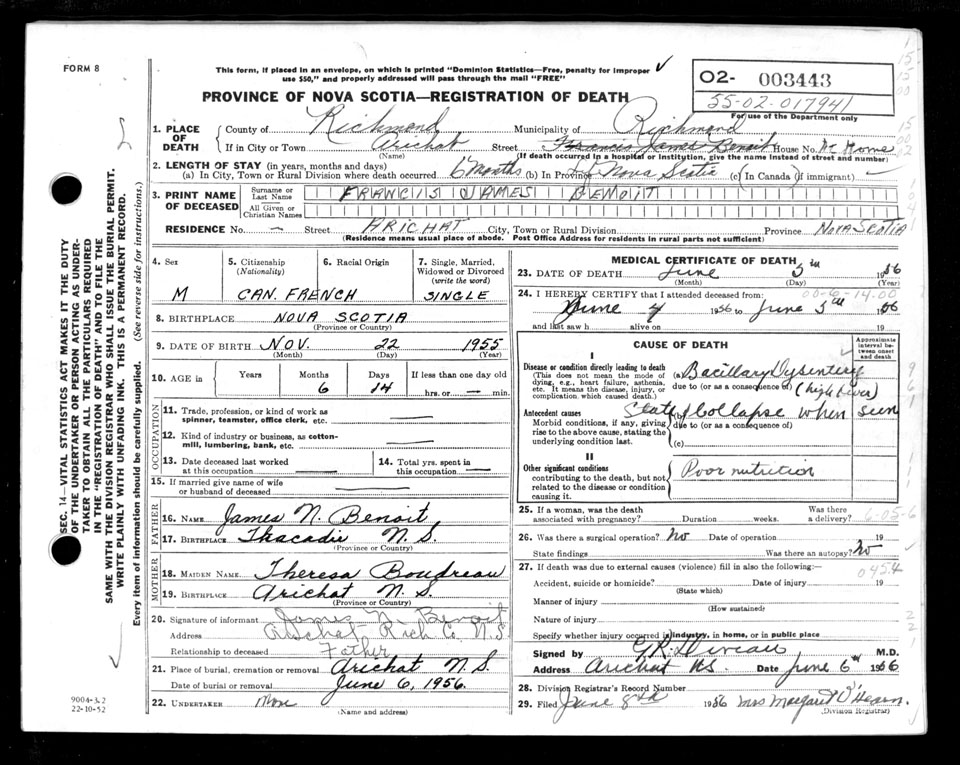 FORM 8
This form, if placed in an envelope, on which is printed "Dominion Statistics—Free, penalty for improper
use $50," and properly addressed will pass through the mail "FREE"
PROVINCE OF NOVA SCOTIA—REGISTRATION OF DEATH
O2- 003443
55-02-017941
For use of the Department only
1. PLACE OF DEATH
County of Richmond Municipality of Richmond
If in City or Town Arichat Street Francis James Benoit House No. At Home
(Name) (If death occurred in a hospital or institution, give the name instead of street and number)
2. LENGTH OF STAY (in years, months and days)
(a) In City, Town or Rural Division where death occurred 6 months (b) In Province Nova Scotia (c) In Canada (if immigrant)
3. PRINT NAME OF DECEASED
Surname or Last Name FRANCIS JAMES BENOIT
All Given or Christian Names
RESIDENCE No. — Street ARICHAT City, Town or Rural Division Province NOVA SCOTIA
(Residence means usual place of abode. Post Office Address for residents in rural parts not sufficient)
4. Sex
M
5. Citizenship
(Nationality)
CAN.
6. Racial Origin
FRENCH
7. Single, Married,
Widowed or Divorced
(write the word)
SINGLE
8. BIRTHPLACE NOVA SCOTIA
(Province or Country)
9. DATE OF BIRTH NOV. 22 1955
(Month) (Day) (Year)
10. AGE in Years Months Days If less than one day old
6 14 hrs. or — min.
OCCUPATION
11. Trade, profession, or kind of work as
spinner, teamster, office clerk, etc.
12. Kind of industry or business, as cotton-
mill, lumbering, bank, etc.
13. Date deceased last worked
at this occupation
14. Total yrs. spent in
this occupation
15. If married give name of wife
or husband of deceased
FATHER
16. NAME James N. Benoit
17. BIRTHPLACE Thacadie N.S.
(Province or Country)
MOTHER
18. MAIDEN NAME Theresa Boudreau
19. BIRTHPLACE Arichat N.S.
(Province or Country)
20. Signature of informant James N. Benoit
Address Arichat Rich Co. N.S.
Relationship to deceased Father
21. Place of burial, cremation or removal Arichat N.S.
Date of burial or removal June 6, 1956.
22. UNDERTAKER
(Name and address)
MEDICAL CERTIFICATE OF DEATH
23. DATE OF DEATH June 5th 1956
(Month) (Day) (Year)
24. I HEREBY CERTIFY that I attended deceased from:
June 4 1956 to June 5th 1956
and last saw h alive on 19
CAUSE OF DEATH
Approximate
interval be-
tween onset
and death
I
Disease or condition directly leading to death
(This does not mean the mode of
dying, e.g., heart failure, asthenia,
etc. It means the disease, injury, or
complication which caused death.)
(a) Bacillary Dysentery
due to (or as a consequence of) (high fever)
Antecedent causes
Morbid conditions, if any, giving
rise to the above cause, stating the
underlying condition last.
(b) State of Collapse when seen
due to (or as a consequence of)
(c)
II
Other significant conditions
contributing to the death, but not
related to the disease or condition
causing it.
Poor nutrition
25. If a woman, was the death
associated with pregnancy? Duration weeks. Was there
a delivery?
26. Was there a surgical operation? No Date of operation 19
State findings Was there an autopsy? No
27. If death was due to external causes (violence) fill in also the following:—
Accident, suicide or homicide? Date of injury 19
(State which)
Manner of injury
(How sustained)
Nature of injury
Specify whether injury occurred in industry, in home, or in public place
Signed by M.D.
Address Arichat NS Date June 6th 1956
28. Division Registrar's Record Number
29. Filed June 8th 1956 Mrs Margaret O'Hearn
(Division Registrar)
SEC. 14—VITAL STATISTICS ACT MAKES IT THE DUTY
OF THE UNDERTAKER OR PERSON ACTING AS UNDER-
TAKER TO OBTAIN ALL THE PARTICULARS REQUIRED
IN THE "REGISTRATION OF DEATH" AND TO FILE THE
SAME WITH THE DIVISION REGISTRAR WHO SHALL ISSUE THE BURIAL PERMIT.
WRITE PLAINLY WITH UNFADING INK. THIS IS A PERMANENT RECORD.
Every item of information should be carefully supplied. (See reverse side for instructions.)
9004-3.2
22-10-52